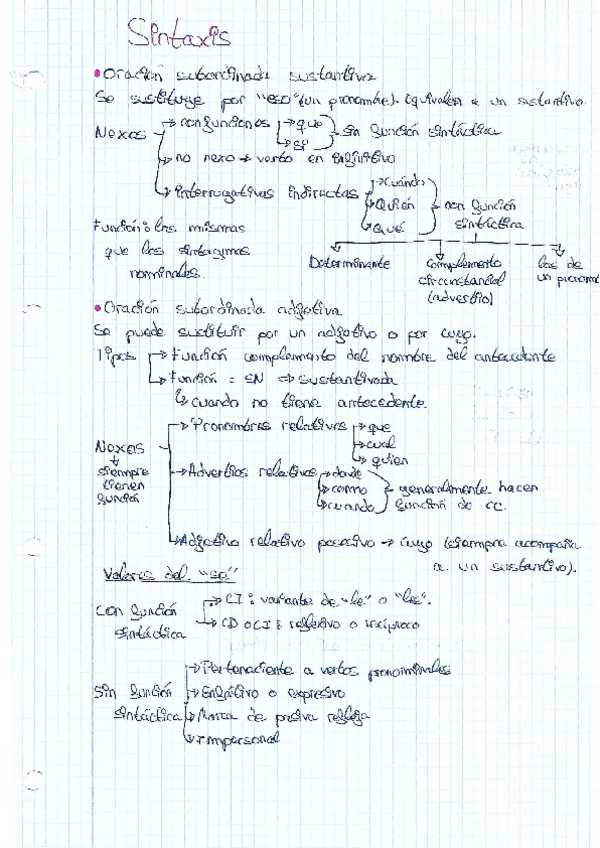 Sintaxis
• Oración subordinada sustantiva
Se sustituye por "eso" (un pronombre). Equivalen a un sustantivo.
Nexos → conjunciones → que
→ si
sin función sintáctica
→ no nexo → verbo en infinitivo
→ Interrogativas indirectas → Cuándo
→ Quién
→ Qué
con función
sintáctica
Función: las mismas
que los sintagmas
nominales.
Determinante
Complemento
circunstancial
(adverbio)
las de
un pronom
• Oración subordinada adjetiva
Se puede sustituir por un adjetivo o por cuyo.
Tipos → Función complemento del nombre del antecedente
→ Función = SN ⇒ sustantivada
↳ cuando no tiene antecedente.
Nexos
↓
siempre
tienen
función
→ Pronombres relativos → que
→ cual
→ quien
→ Adverbios relativos → donde
→ como
→ cuando
generalmente hacen
función de CC.
→ Adjetivo relativo posesivo → cuyo (siempre acompaña
a un sustantivo).
Valores del "se"
Con función
sintáctica
→ CI: variante de "le" o "les".
→ CD o CI: reflexivo o recíproco
Sin función
sintáctica
→ Perteneciente a verbos pronominales
→ Enfático o expresivo
→ Marca de pasiva refleja
→ Impersonal